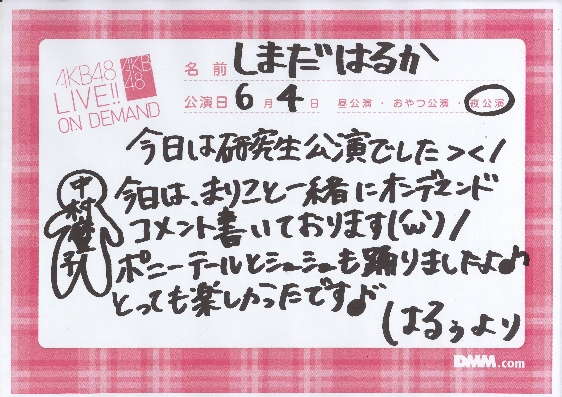 AKB48
LIVE!!
ON DEMAND
AKB
48
名前 しまだはるか
公演日 6月4日 昼公演・おやつ公演・夜公演
今日は研究生公演でした><!
今日は、まりこと一緒にオンデマンド
コメント書いております(ω)!
ポニーテールとシュシュも踊りましたよ♪
とっても楽しかったです♪
はるぅより
中村麻里子
DMM.com